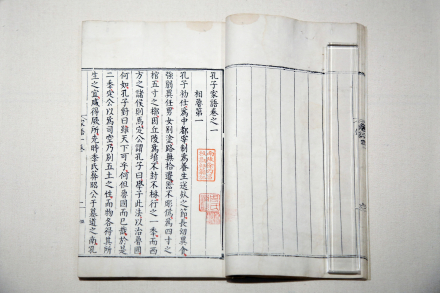 孔子家語卷之一
相魯第一
孔子初仕為中都宰制為養生送死之節長幼異食
強弱異任男女別塗路無拾遺器不彫偽為四寸之
棺五寸之槨因丘陵為墳不封不樹行之一季而西
方之諸侯則焉定公謂孔子曰學子此法以治魯國
何如孔子對曰雖天下可乎何但魯國而已哉於是
二季定公以為司空乃別五土之性而物各得其所
生之宜咸得厥所先時季氏葬昭公于墓道之南孔